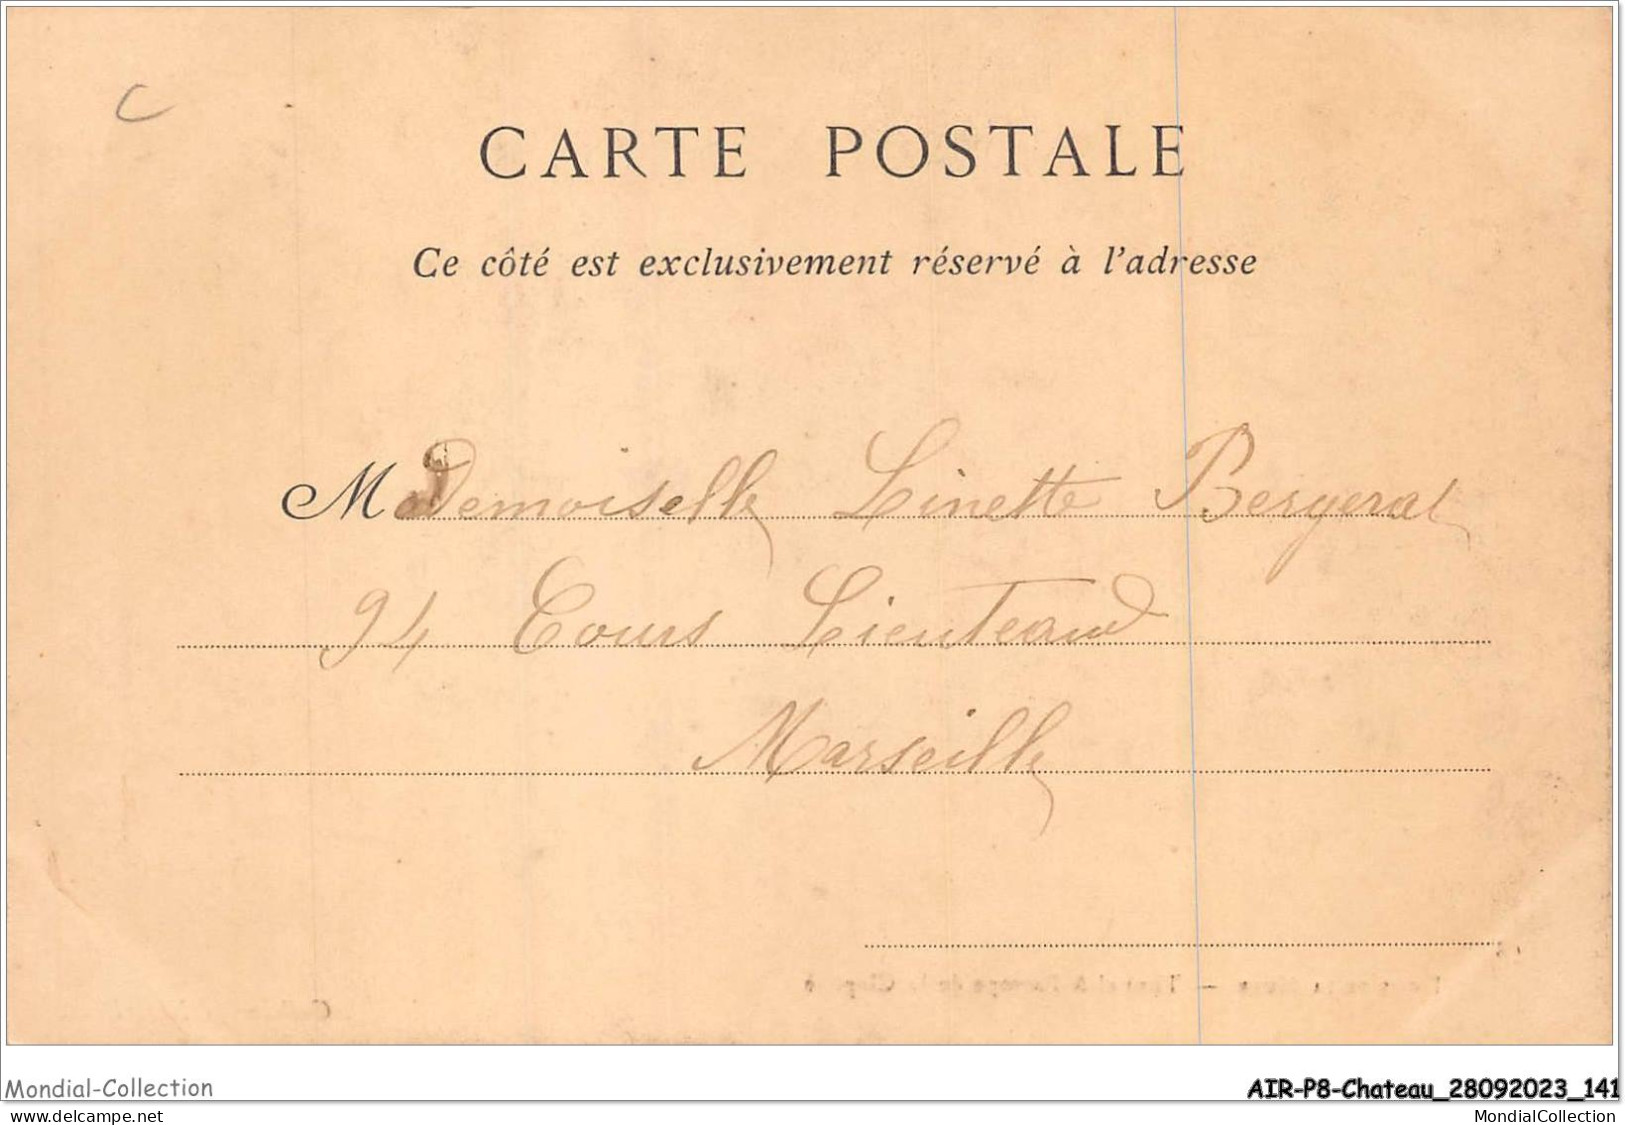 C
CARTE POSTALE
Ce côté est exclusivement réservé à l'adresse
MaDemoiselle Linette Bergerat
94 Cours Lieutaud
Marseille
Mondial-Collection
AIR-P8-Chateau_28092023_141
www.delcampe.net
MondialCollection